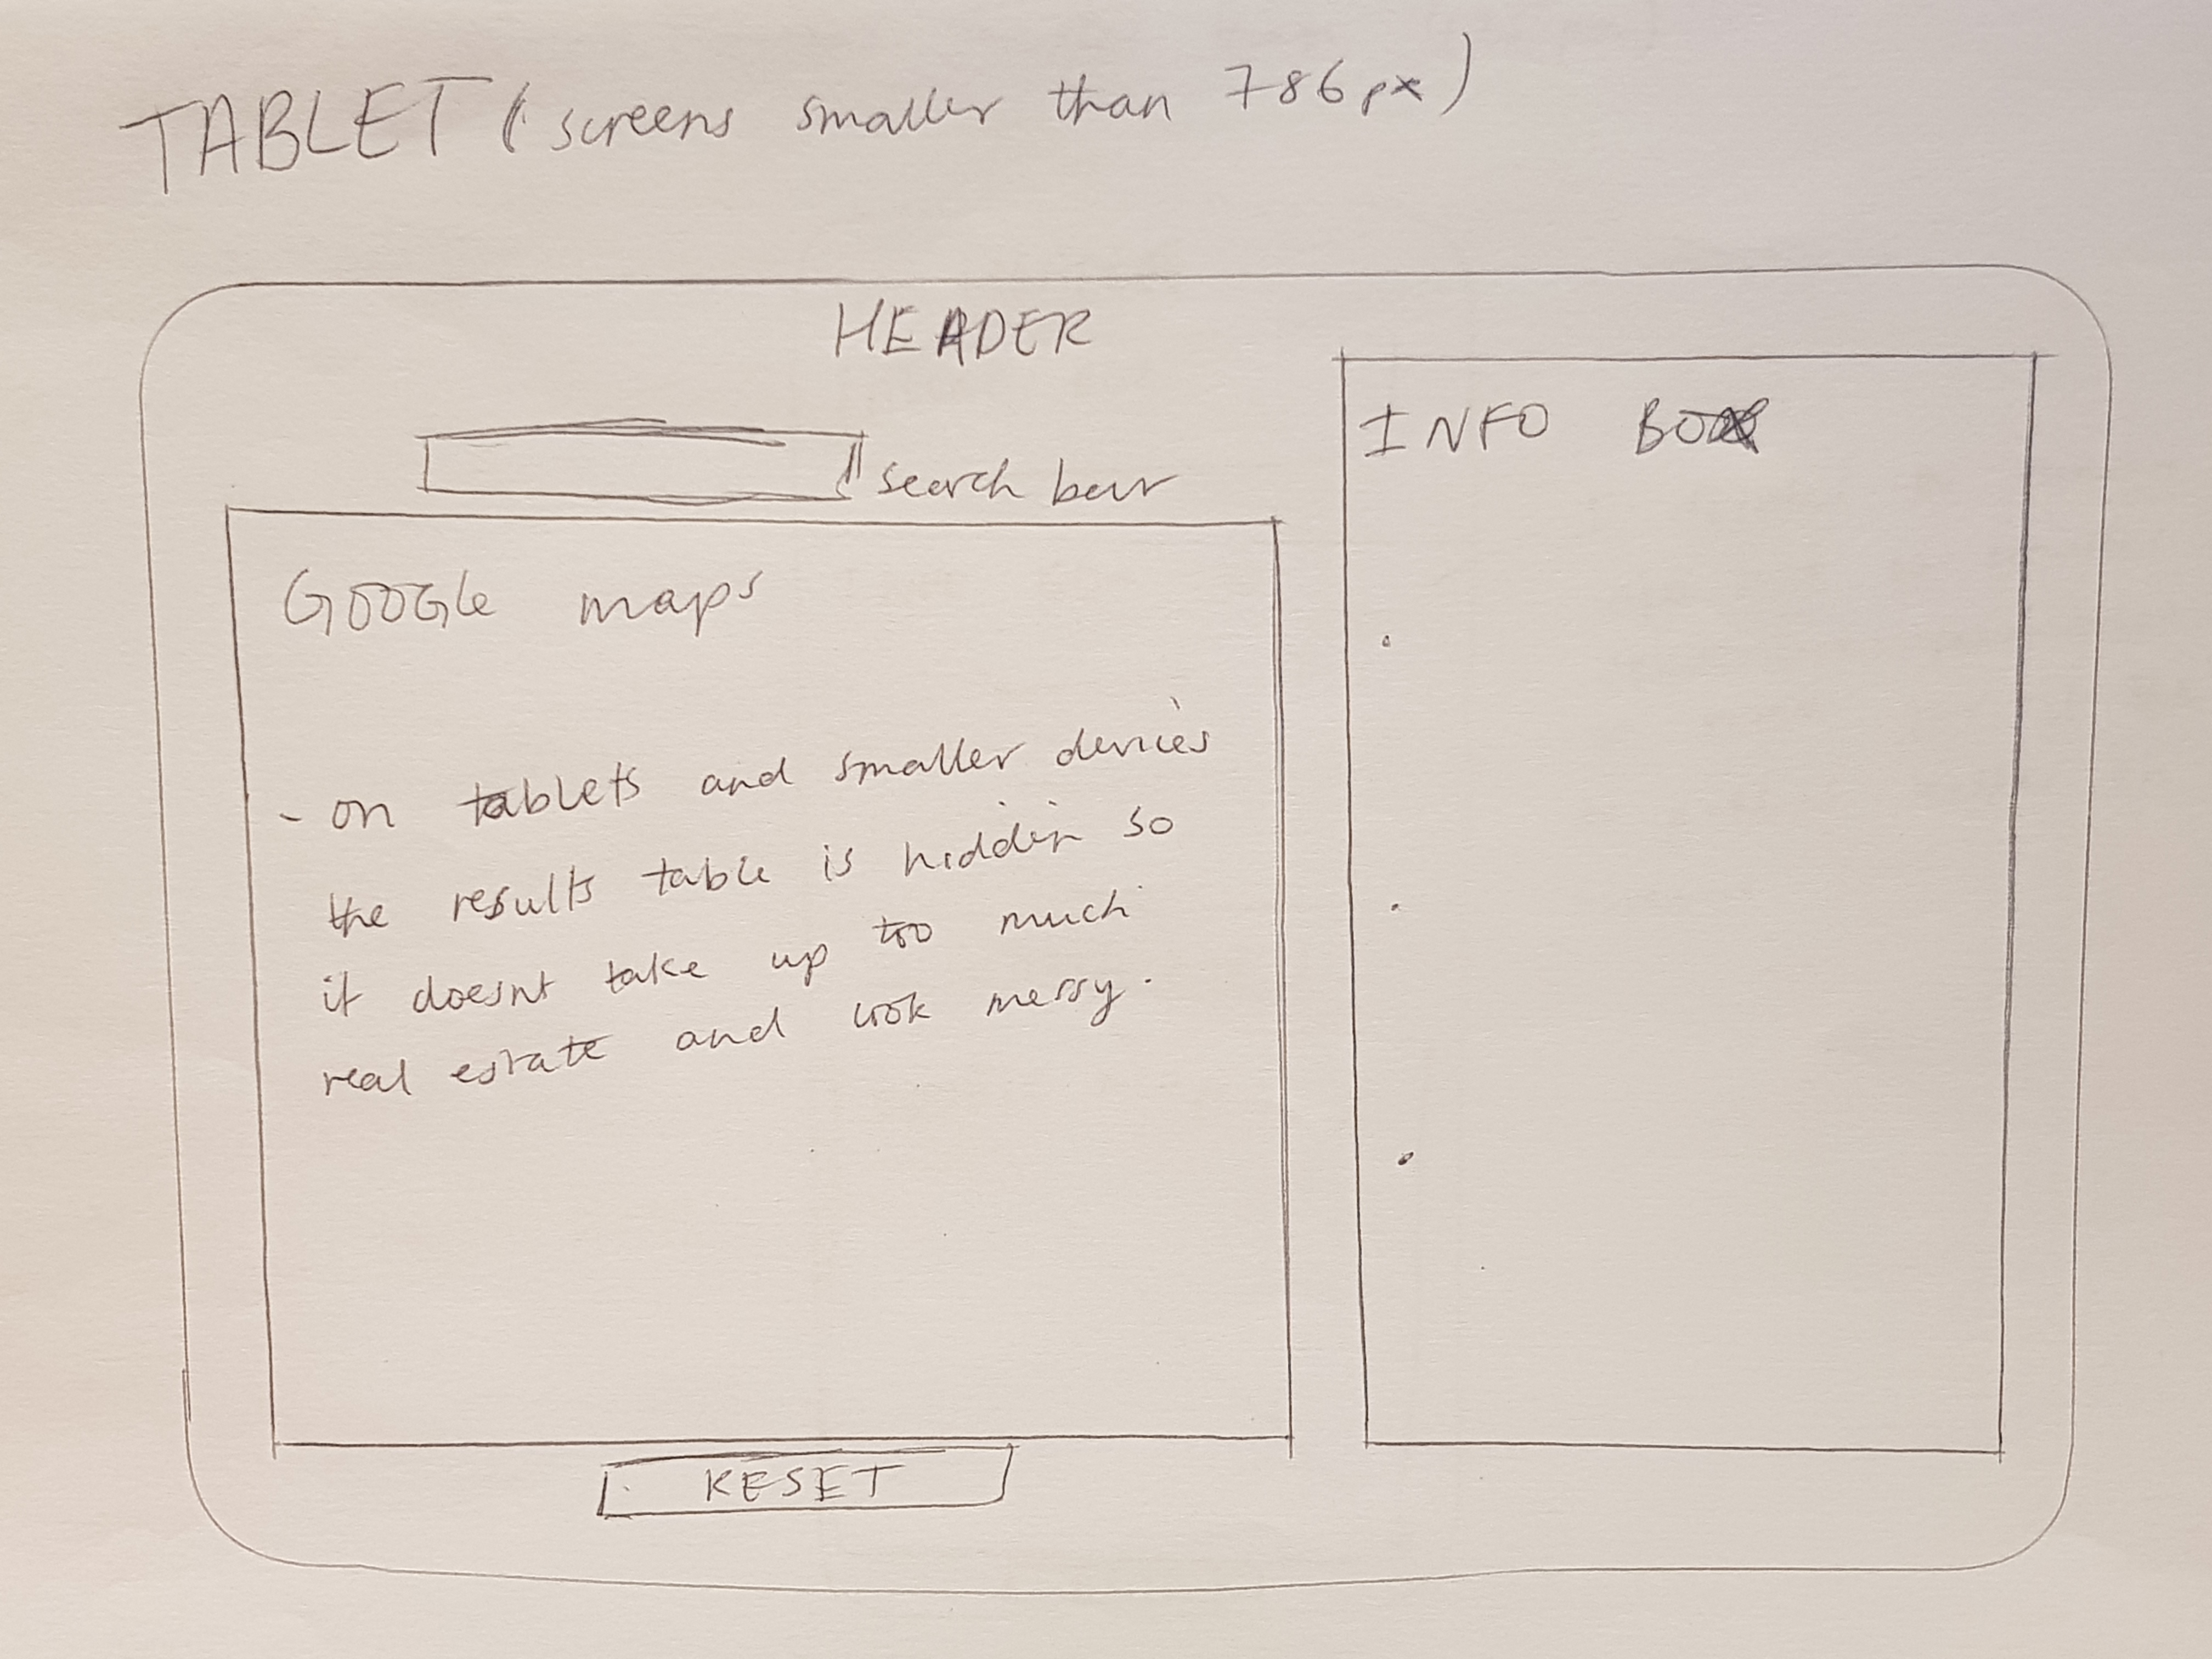 TABLET (screens smaller than 786px)
HEADER
INFO BOX
search bar
GOOGLE maps
- on tablets and smaller devices
the results table is hidden so
it doesnt take up too much
real estate and look messy.
RESET